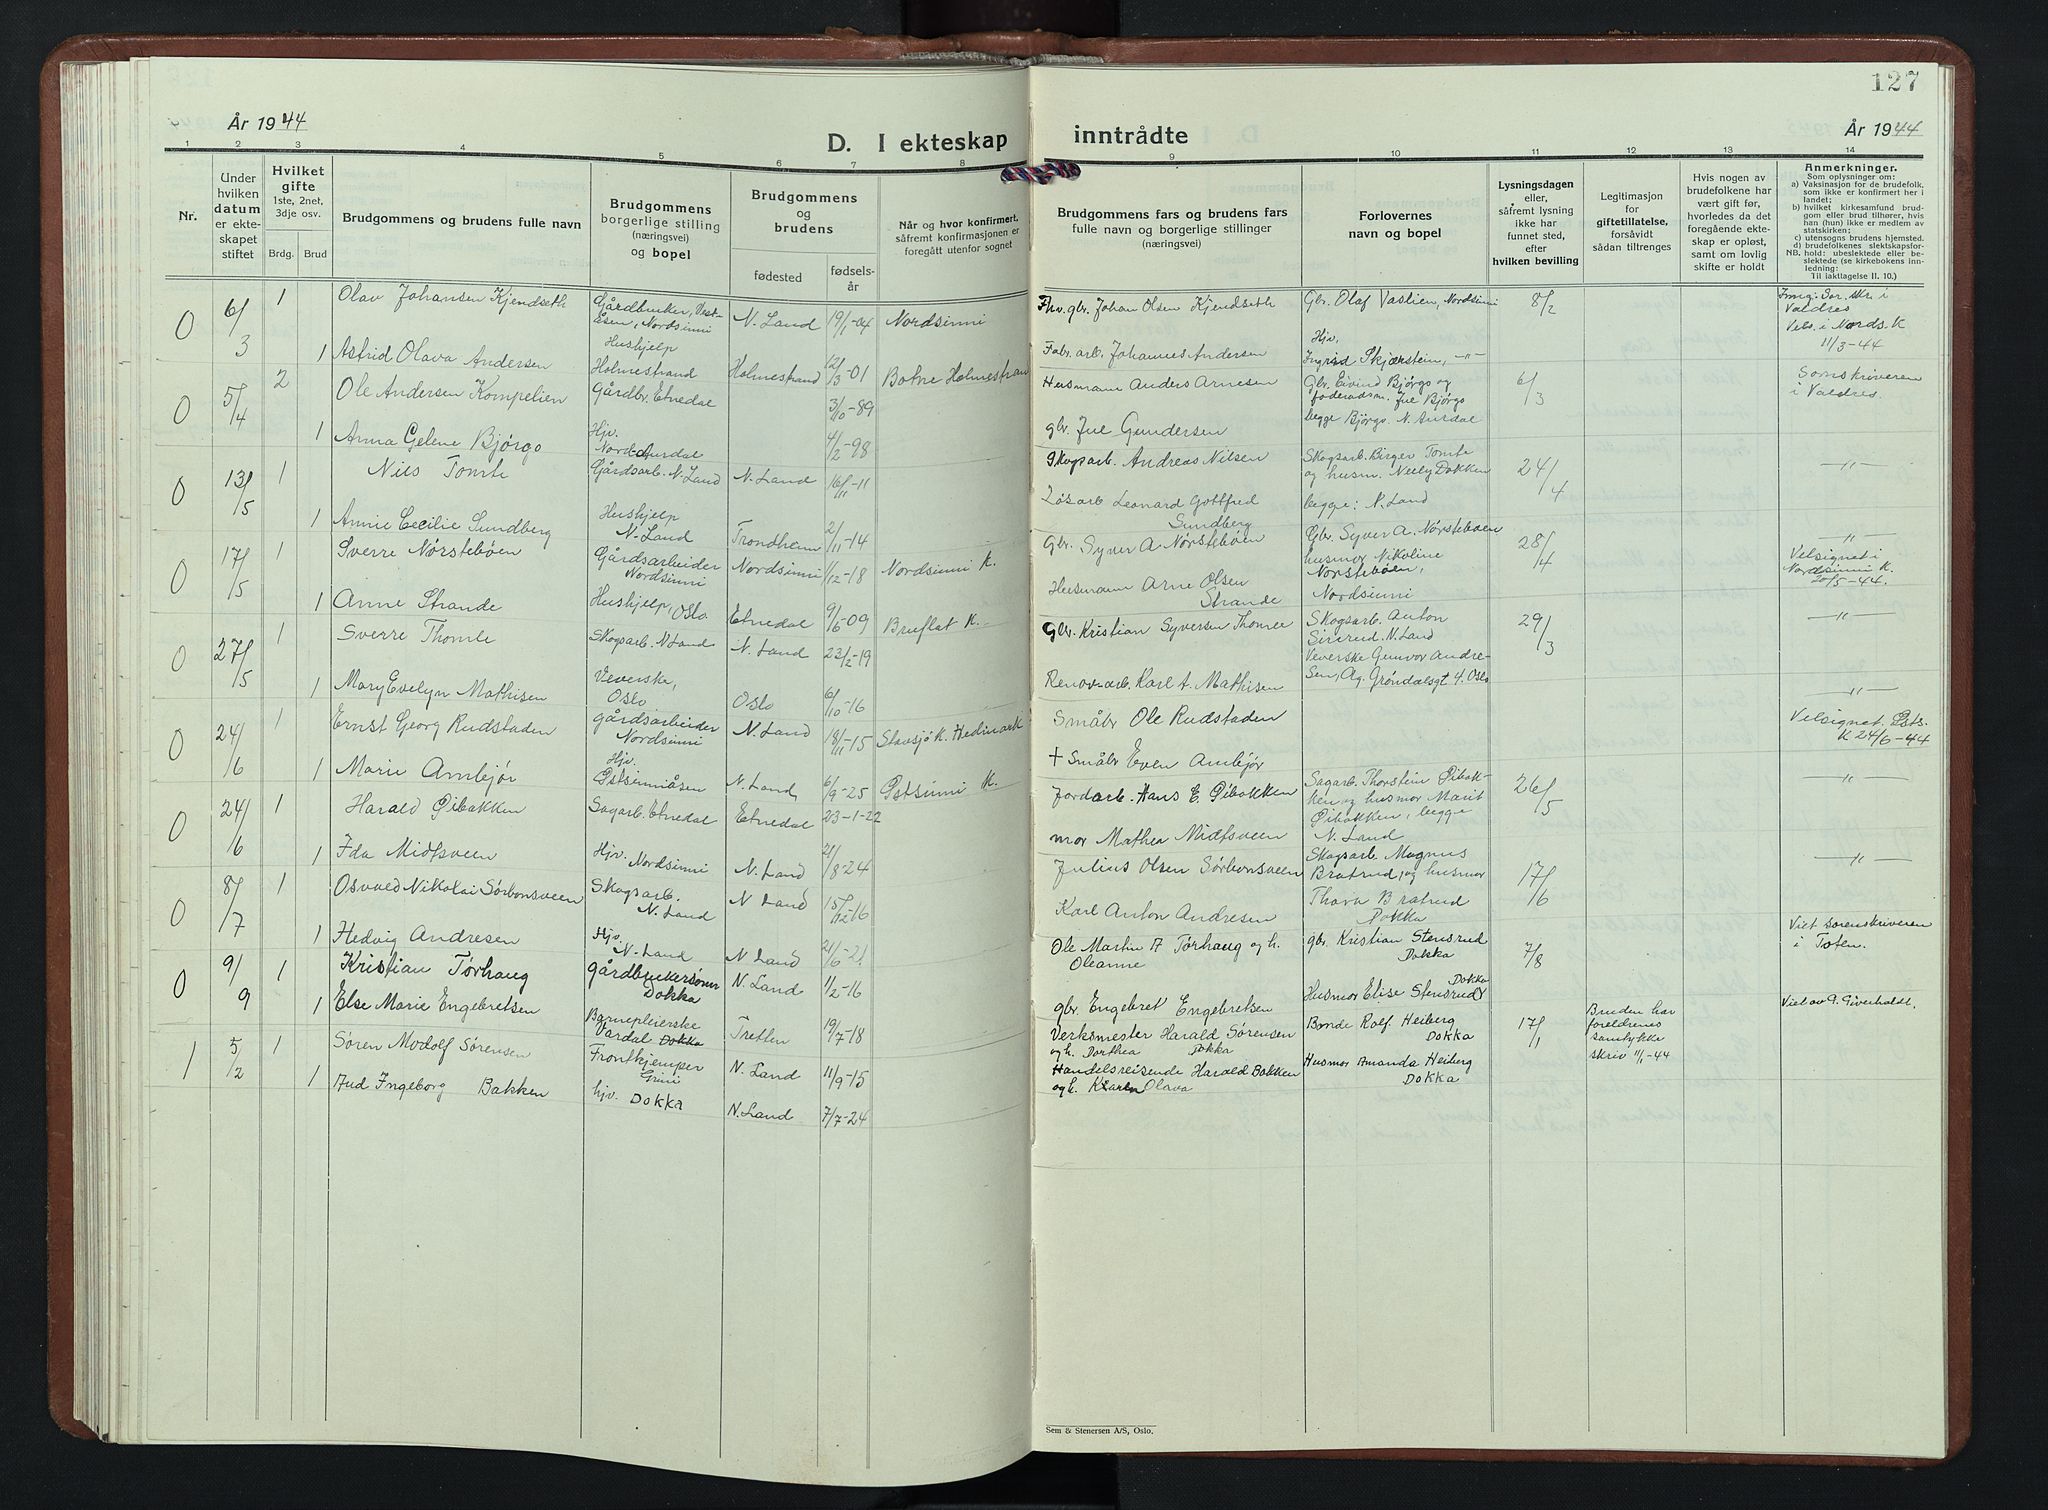 127
År 1944
D. I ekteskap
inntrådte
År 1944
1 2 3 4 5 6 7 8
9 10 11 12 13 14
Nr.
Under hvilken datum er ekteskapet stiftet
Hvilket gifte 1ste, 2net, 3dje osv.
Brdg. Brud
Brudgommens og brudens fulle navn
Brudgommens borgerlige stilling (næringsvei) og bopel
Brudgommens og brudens
fødested
fødselsår
Når og hvor konfirmert, såfremt konfirmasjonen er foregått utenfor sognet
Brudgommens fars og brudens fars fulle navn og borgerlige stillinger (næringsvei)
Forlovernes navn og bopel
Lysningsdagen eller, såfremt lysning ikke har funnet sted, efter hvilken bevilling
Legitimasjon for giftetillatelse, forsåvidt sådan tiltrenges
Hvis nogen av brudefolkene har vært gift før, hvorledes da det foregående ekteskap er opløst, samt om lovlig skifte er holdt
Anmerkninger.
Som oplysninger om:
a) Vaksinasjon for de brudefolk, som ikke er konfirmert her i landet;
b) hvilket kirkesamfund brudgom eller brud tilhører, hvis han (hun) ikke er medlem av statskirken;
c) utensogns brudens hjemsted.
d) brudefolkenes slektskapsforhold: ubeslektede eller beslektede (se kirkebokens innledning:
NB. Til iakttagelse II. 10.)
0 6/3 1 Olav Johansen Kjendseth Gårdbruker, Veståsen, Nordsinni N. Land 19/1-04 Nordsinni
Fhv. gbr. Johan Olsen Kjendseth Gbr. Olaf Vastien, Nordsinni 8/2 Sor. skr. i Valdres
Vels. i Nords. K 11/3-44
1 Astrid Olava Andersen Hushjelp Holmestrand Holmestrand 12/3-01 Botne Holmestran
Fabr. arb. Johannes Andersen Hjv. Ingrid Skjærstein, -"-
0 5/4 2 Ole Andersen Kompelien Gårdbr. Etnedal 3/10-89
Husmann Anders Arnesen Gbr. Eivind Bjørgo og føderådsm. Jul Bjørgo begge Bjørgo N. Aurdal 6/3 Sorenskriveren i Valdres.
1 Anna Gelene Bjørgo Hjv. Nord-Aurdal 4/2-98
gbr. Jul Gundersen
0 13/5 1 Nils Tomte Gårdsarb. N. Land N. Land 16/11-11
Skogsarb. Andreas Nilsen Skogsarb. Birger Tomte og husm. Nelly Dokken begge: N. Land 24/4 -"-
1 Annie Cecilie Sundberg Hushjelp N. Land Trondheim 2/11-14
Løsarb. Leonard Gottfred Sundberg
0 17/5 1 Sverre Nørstebøen Gårdsarbeider Nordsinni Nordsinni 1/12-18 Nordsinni K.
Gbr. Syver A. Nørstebøen Gbr. Syver A. Nørstebøen husmor Nikoline Nørstebøen, Nordsinni 28/4 Velsignet i Nordsinni K. 20/5-44.
1 Anne Strande Hushjelp, Oslo. Etnedal 9/6-09 Bruflat K.-
Husmann Arne Olsen Strande
0 27/5 1 Sverre Thomle Skogsarb. N. Land N. Land 23/2-19
Gbr. Kristian Syversen Thomle Skogsarb. Anton N. Land Veverske Gunvor Andresen, Ag. Grøndalsgt 4. Oslo 29/3 -"-
1 Mary Evelyn Mathisen Veverske, Oslo Oslo 6/10-16
Renov. arb. Karl A. Mathisen -"-
0 24/6 1 Ernst Georg Rudstaden gårdsarbeider Nordsinni N. Land 18/11-15 Stavsjø K. Hedmark
Småbr Ole Rudstaden Velsignet Østs. K 24/6-44
1 Marie Amlejør Hjv. Østsinniåsen N. Land 6/9-25 Østsinni K.
+ Småbr Even Amlejør
0 24/6 1 Harald Øibakken Sagarb. Etnedal Etnedal 23-1-22
Jordarb. Hans E. Øibakken Sagarb. Thorstein Øibakken og husmor Marit Øibakken, begge N. Land 26/5 -"-
1 Ida Midtsveen Hjv. Nordsinni N. Land 21/8-24
mor Mathea Midtsveen
0 8/7 1 Osvald Nikolai Sørbonsveen Skogsarb. N. Land N Land 15/12-16
Julius Olsen Sørbonsveen Skogsarb. Magnus Bratrud, og husmor Thora Bratrud Dokka 17/6 -"-
1 Hedvig Andresen Hjv. N. Land N Land 21/6-21
Karl Anton Andresen
0 9/9 1 Kristian Tørhaug gårdbrukersønn Dokka N. Land 1/2-16
Ole Martin A Tørhaug og h. Oleanne gbr. Kristian Stensrud Dokka 7/8 Viet sorenskriveren i Toten.
1 Else Marie Engebretsen Barnepleierske Vardal Dokka Tretten 19/7-18
gbr. Engebret Engebretsen Husmor Elise Stensrud Dokka
1 5/2 1 Søren Modolf Sørensen Frontkjemper Grini N. Land 11/9-15
Verksmester Harald Sørensen og h. Dorthea Dokka Bonde Rolf Heiberg Dokka 17/1 Bruden har foreldrenes samtykke skriv 11/1-44
1 Aud Ingeborg Bakken hjv. Dokka N. Land 7/7-24
Handelsreisende Harald Bakken og h. Klara Olava Husmor Amanda Heiberg Dokka
Sem & Stenersen A/S, Oslo.